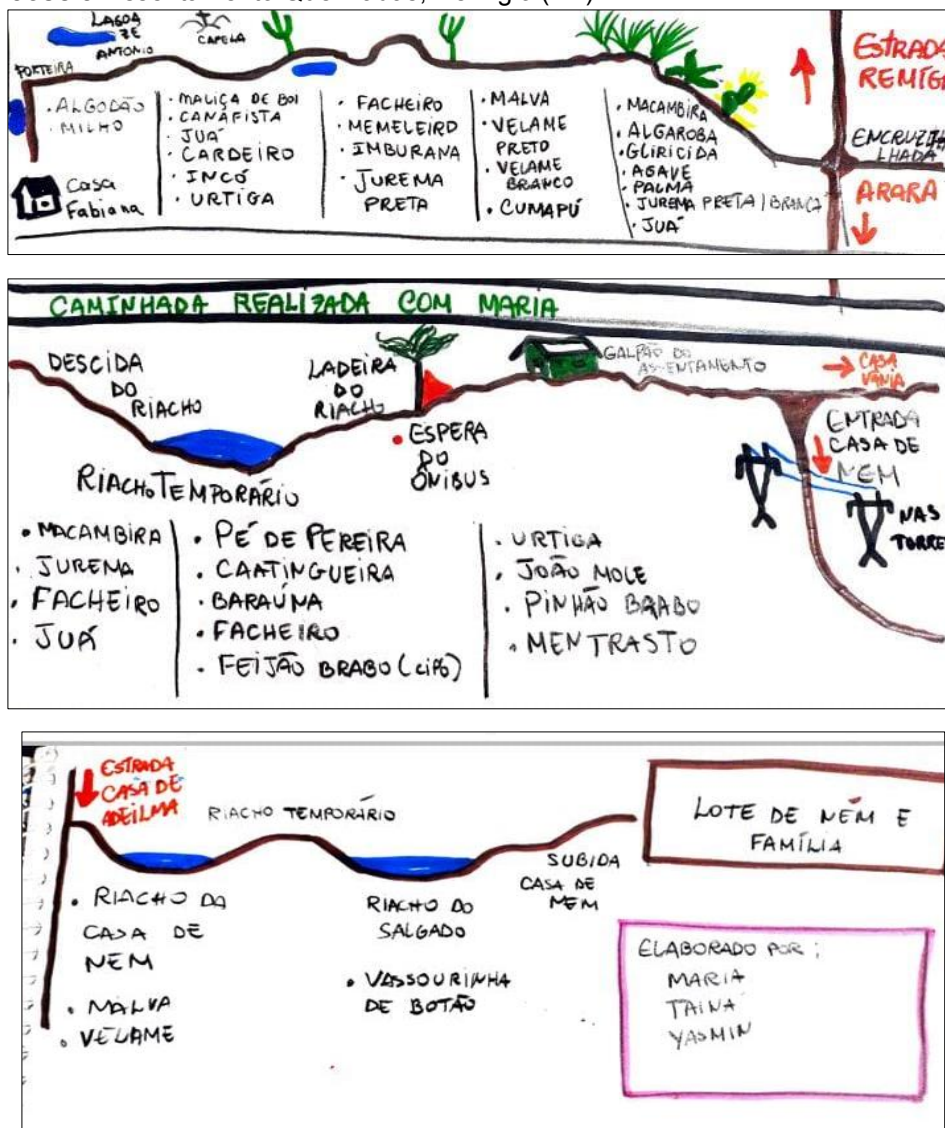 LAGOA
ZÉ
ANTONIO
CAPELA
PORTEIRA
· ALGODÃO
· MILHO
Casa
Fabiana
· MALIÇA DE BOI
· CANAFISTA
· JUÁ
· CARDEIRO
· INCÓ
· URTIGA
· FACHEIRO
· MEMELEIRO
· IMBURANA
· JUREMA
PRETA
· MALVA
· VELAME
PRETO
· VELAME
BRANCO
· CUMAPÚ
· MACAMBIRA
· ALGAROBA
· GLIRICIDA
· AGAVE
· PALMA
· JUREMA PRETA / BRANCA
· JUÁ
ESTRADA
ENCRUZI
LHADA
ARARA
CAMINHADA REALIZADA COM MARIA
DESCIDA
DO
RIACHO
LADEIRA
DO
RIACHO
GALPÃO DO
ASSENTAMENTO
→ CASA
VANIA
• ESPERA
DO
ÔNIBUS
ENTRADA
CASA DE
NEM
NAS
TORRE
RIACHO TEMPORÁRIO
• MACAMBIRA
· JUREMA
• FACHEIRO
· JUÁ
• PÉ DE PEREIRA
• CAATINGUEIRA
• BARAÚNA
• FACHEIRO
• FEIJÃO BRABO (cipó)
· URTIGA
• JOÃO MOLE
• PINHÃO BRABO
• MENTRASTO
ESTRADA
CASA DE
ADEILMA
RIACHO TEMPORÁRIO
SUBIDA
CASA DE
NEM
• RIACHO DA
CASA DE
NEM
• MALVA
• VELAME
RIACHO DO
SALGADO
• VASSOURINHA
DE BOTÃO
LOTE DE NEM E
FAMÍLIA
ELABORADO POR:
MARIA
TAINÁ
YASMIN